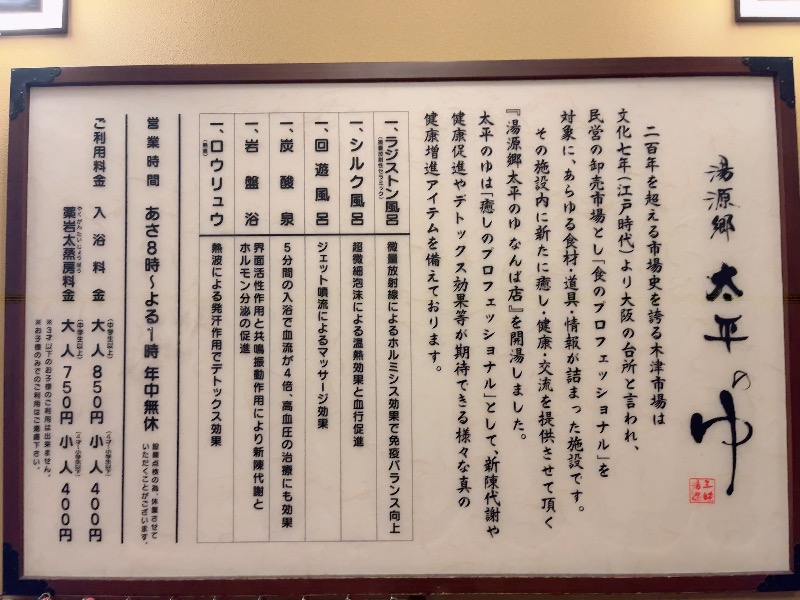 湯源郷 太平のゆ
二百年を超える市場史を誇る木津市場は
文化七年（江戸時代）より大阪の台所と言われ、
民営の卸売市場とし「食のプロフェッショナル」を
対象に、あらゆる食材・道具・情報が詰まった施設です。
その施設内に新たに癒し・健康・交流を提供させて頂く
『湯源郷太平のゆ なんば店』を開湯しました。
太平のゆは「癒しのプロフェッショナル」として、新陳代謝や
健康促進やデトックス効果等が期待できる様々な真の
健康増進アイテムを備えております。
一、ラジストン風呂 微量放射線によるホルミシス効果で免疫バランス向上
（微量放射性セラミック）
一、シルク風呂 超微細泡沫による温熱効果と血行促進
一、回遊風呂 ジェット噴流によるマッサージ効果
一、炭酸泉 5分間の入浴で血流が4倍、高血圧の治療にも効果
一、岩盤浴 界面活性作用と共鳴振動作用により新陳代謝と
ホルモン分泌の促進
一、ロウリュウ 熱波による発汗作用でデトックス効果
（熱波）
営業時間 あさ8時〜よる1時 年中無休
設備点検の為、休業させて
いただくことがございます。
ご利用料金 入浴料金 大人850円 小人400円
（中学生以上） （4才〜小学生以下）
薬岩太蒸房料金 大人750円 小人400円
やくがんたいじょうぼう （中学生以上） （4才〜小学生以下）
※3才以下のお子様のご利用は出来ません。
※お子様のみでのご利用はご遠慮下さい。